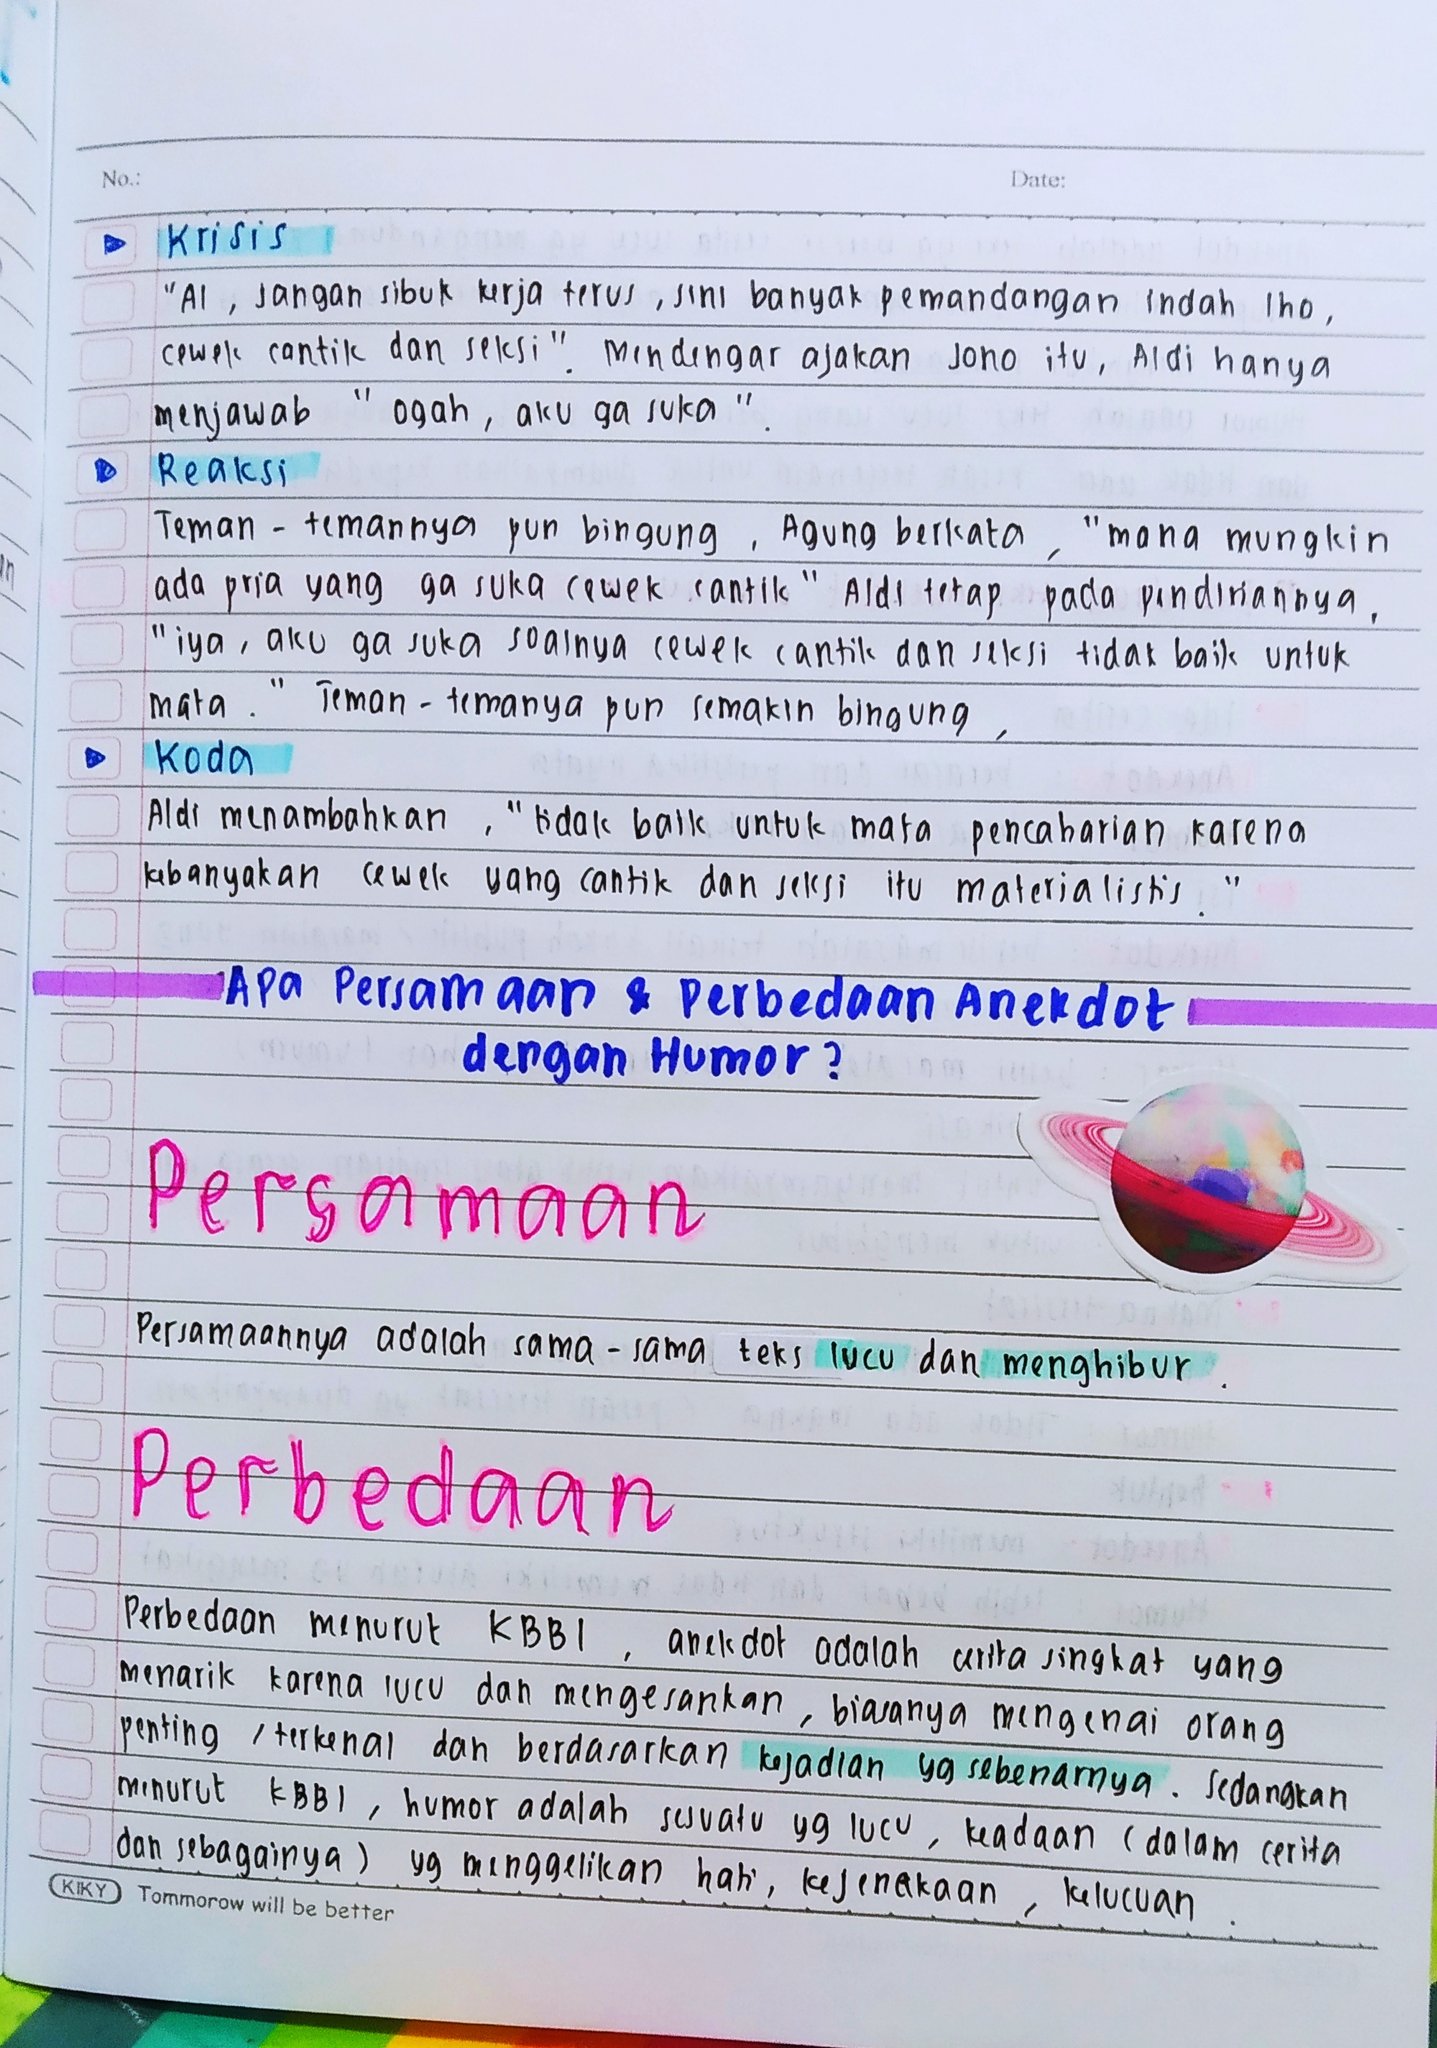 No.:
Date:
Krisis
"Al, jangan sibuk kerja terus, sini banyak pemandangan indah lho,
cewek cantik dan seksi". Mendengar ajakan Jono itu, Aldi hanya
menjawab "ogah, aku ga suka".
Reaksi
Teman-temannya pun bingung, Agung berkata, "mana mungkin
ada pria yang ga suka cewek cantik" Aldi tetap pada pendiriannya,
"iya, aku ga suka soalnya cewek cantik dan seksi tidak baik untuk
mata." Teman-temanya pun semakin bingung,
Koda
Aldi menambahkan, "tidak baik untuk mata pencaharian karena
kebanyakan cewek yang cantik dan seksi itu materialistis."
Apa Persamaan & Perbedaan Anekdot
dengan Humor?
Persamaan
Persamaannya adalah sama-sama teks lucu dan menghibur.
Perbedaan
Perbedaan menurut KBBI, anekdot adalah cerita singkat yang
menarik karena lucu dan mengesankan, biasanya mengenai orang
penting /terkenal dan berdasarkan kejadian yg sebenarnya. Sedangkan
menurut KBBI, humor adalah sesuatu yg lucu, keadaan (dalam cerita
dan sebagainya) yg menggelikan hati, kejenakaan, kelucuan.
KIKY Tommorow will be better